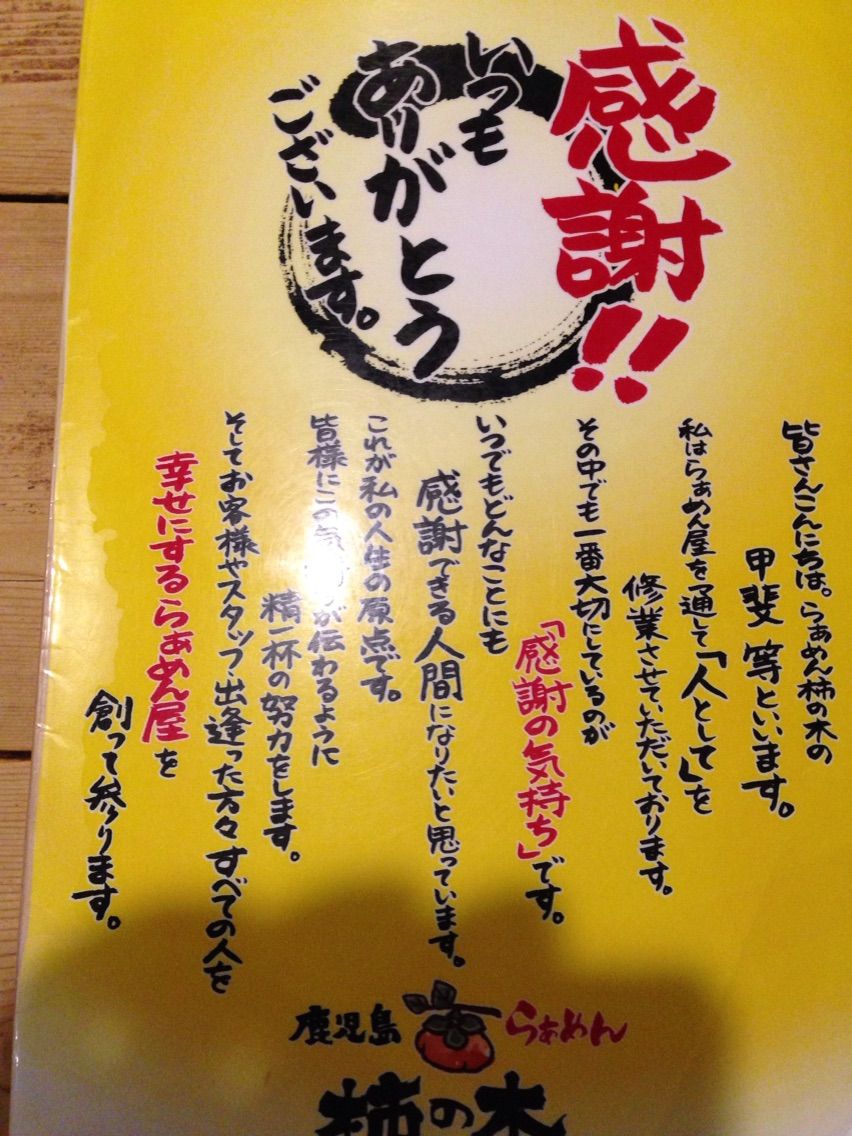 感謝!!
いつも
ありがとう
ございます。
皆さんこんにちは。らぁめん柿の木の
甲斐 等といいます。
私はらぁめん屋を通して「人として」を
修業させていただいております。
その中でも一番大切にしているのが
「感謝の気持ち」です。
いつでもどんなことにも
感謝できる人間になりたいと思っています。
これが私の人生の原点です。
皆様にこの気持ちが伝わるように
精一杯の努力をします。
そしてお客様やスタッフ、出逢った方々すべての人を
幸せにするらぁめん屋を
創って参ります。
鹿児島 らぁめん
柿の木